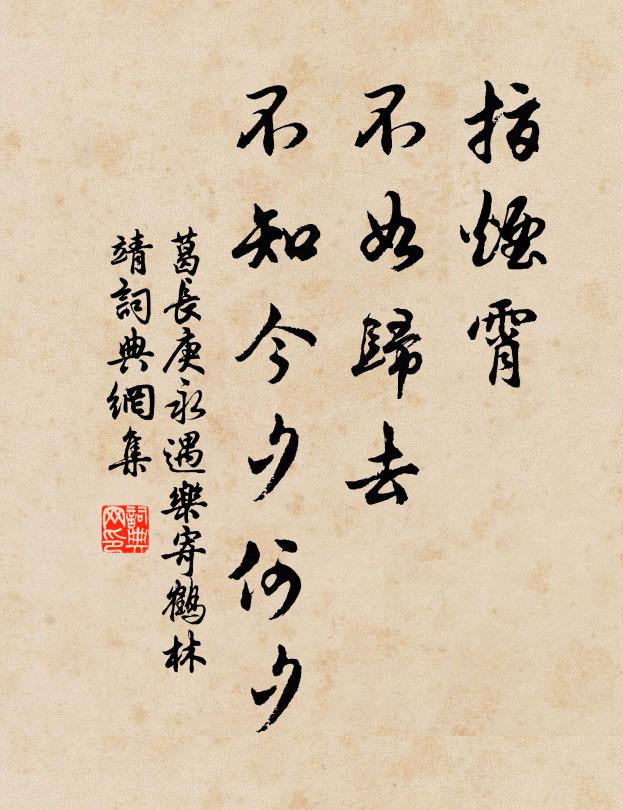 指煙霄
不如歸去
不知今夕何夕
葛長庚永遇樂寄鶴林
靖詞典網集
詞典
网印